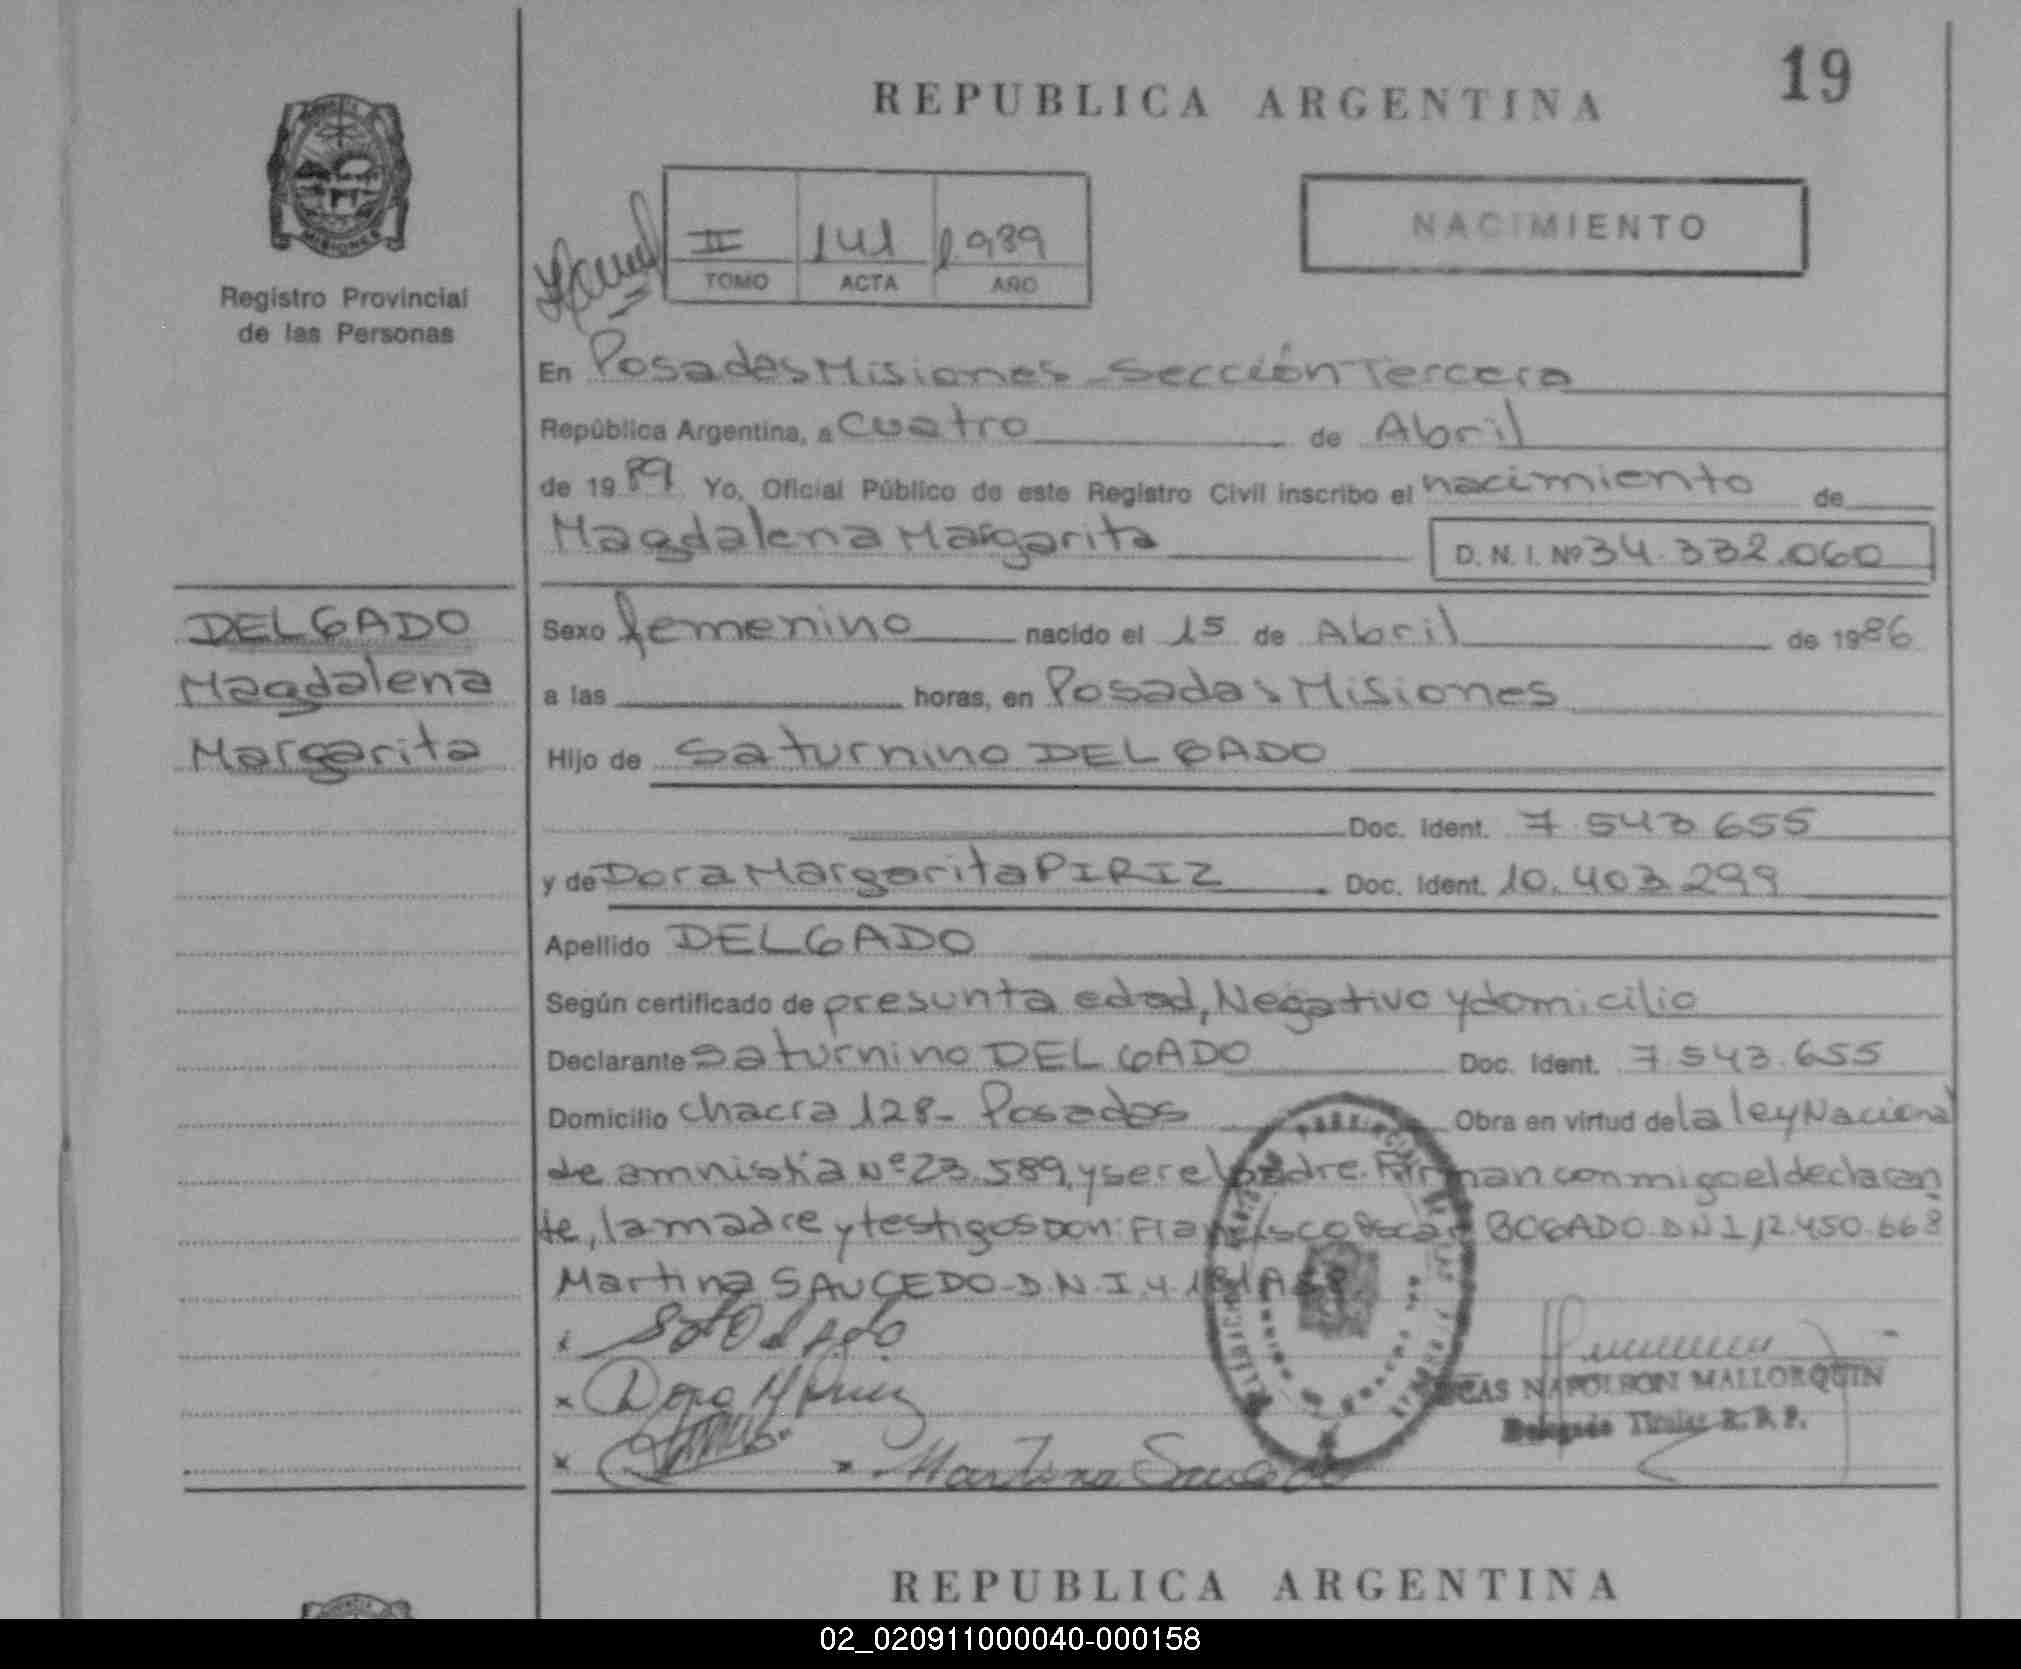 REPUBLICA ARGENTINA
19
MISIONES
Registro Provincial
de las Personas
II 141 1989
TOMO ACTA AÑO
NACIMIENTO
En Posadas Misiones - Sección Tercera
República Argentina, a Cuatro de Abril
de 1989 Yo, Oficial Público de este Registro Civil inscribo el nacimiento de
Magdalena Margarita D. N. I. Nº 34.332.060
DELGADO
Magdalena
Margarita
Sexo femenino nacido el 15 de Abril de 1986
a las horas, en Posadas Misiones
Hijo de Saturnino DELGADO
Doc. Ident. 7.543.655
y de Dora Margarita PIRIZ Doc. Ident. 10.403.299
Apellido DELGADO
Según certificado de presunta edad, Negativo y domicilio
Declarante Saturnino DELGADO Doc. Ident. 7.543.655
Domicilio Chacra 128 - Posadas Obra en virtud de la ley Nacional
de amnistía Nº 23.589, y ser el padre. Firman conmigo el declaran
te, la madre y testigos Don: Francisco Oscar BOGADO DNI 12.450.668
Martina SAUCEDO - D.N.I. 4.
Dora M Piriz
Martina Saucedo
LUCAS NAPOLEON MALLORQUIN
Delegado Titular R. P. P.
REPUBLICA ARGENTINA
02_020911000040-000158